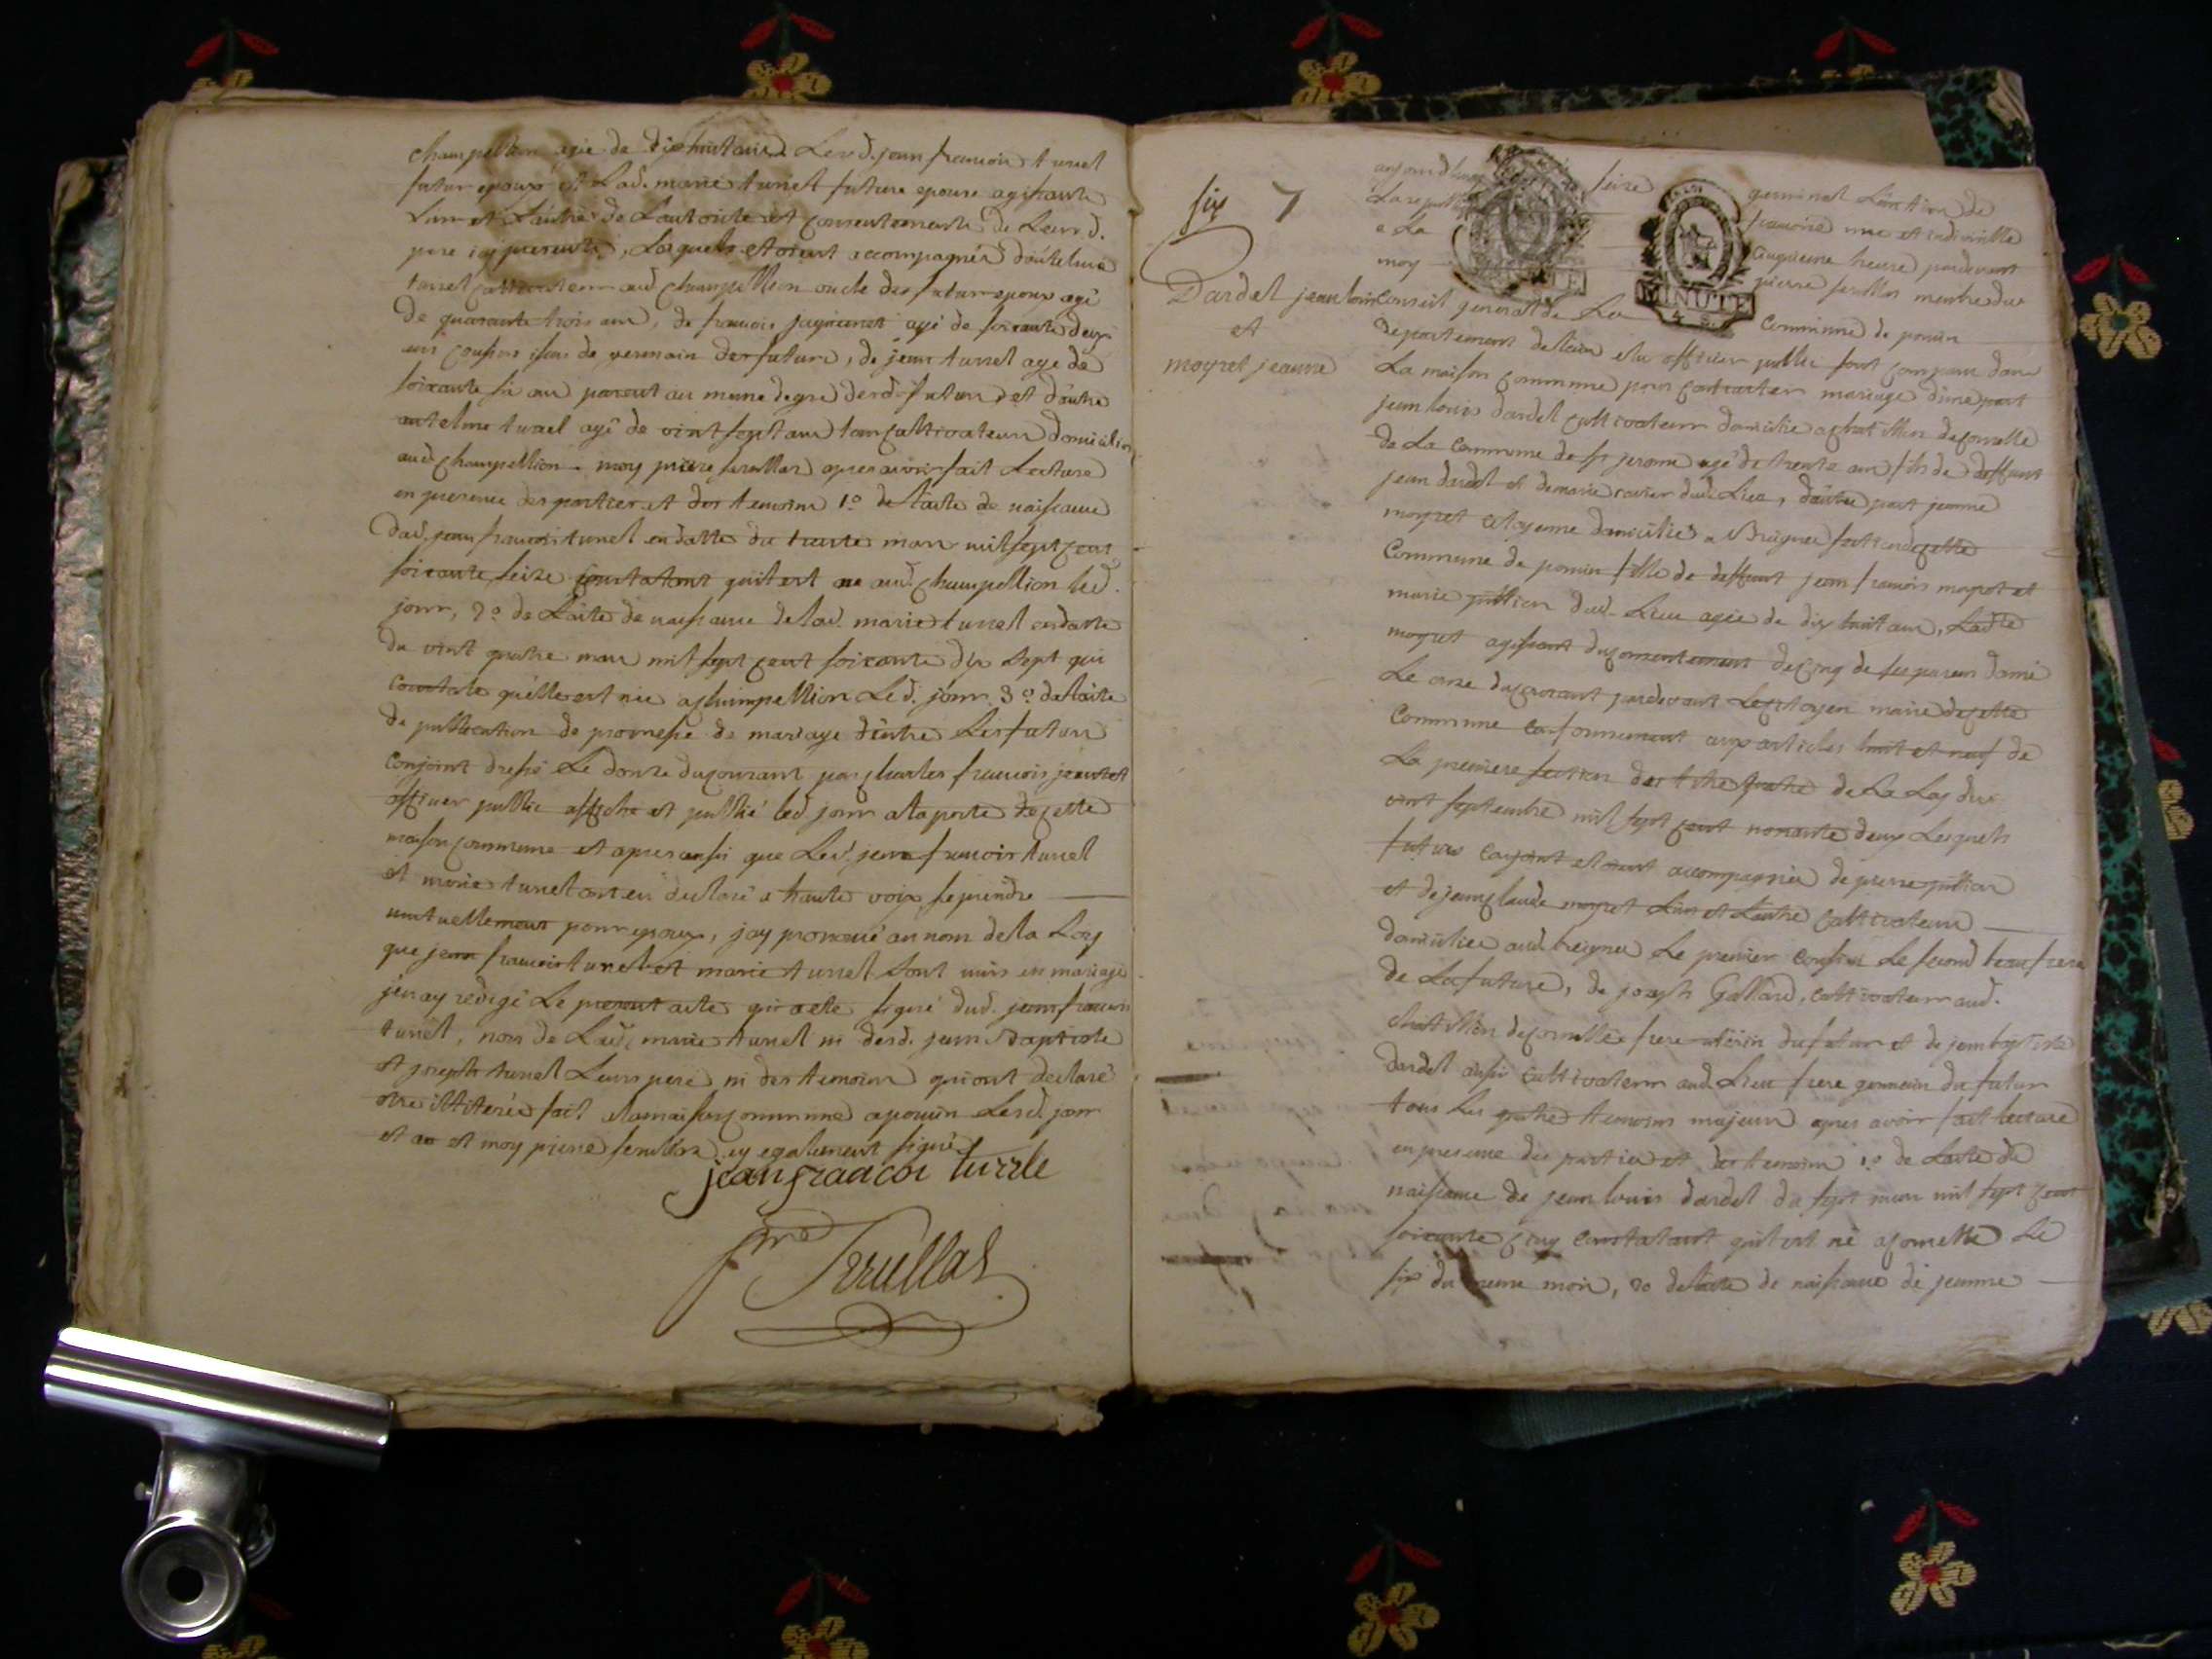 champellion agée de dix huit ans Lesd. jean francois turrel
futur epoux et Lad. marie turrel future epouse agissants
L'un et L'autre de L'autorité et consentement de Leurs d.
pere icy presents, Lesquels etoient accompagnés d'antelme
turrel cultivateur aud champellion oncle des futurs epoux agé
de quarante trois ans, de francois agé de soixante deux
ans cousin issus de germain des futurs, de jean turrel agé de
soixante six ans parent au meme degré desd. futurs, et d'autre
antelme turrel agé de vint sept ans tous cultivateurs domiciliés
aud. champellion. moy pierre serullas apres avoir fait Lecture
en presence des parties et des temoins 1º de l'acte de naissance
dud. jean francois turrel en datte du trente mars mil sept cent
soixante seize constatant qu'il est né aud. champellion led.
jour, 2º de L'acte de naissance de lad. marie turrel en datte
du vint quatre mars mil sept cent soixante dix sept qui
constate qu'elle est née a champellion Led. jour 3º de l'acte
de publication de promesse de mariage d'entre Les futurs
conjoint dressé Le douze du courant par charles francois jeantet
officier public affiché et publié led jour a la porte de cette
maison commune et apres aussi que Led. jean francois turrel
et marie turrel ont eu declaré a haute voix se prendre
mutuellement pour epoux, j'ay prononcé au nom de la Loy
que jean francois turrel et marie turrel sont unis en mariage
j'en ay redigé Le present acte qui a eté signé dud. jean francois
turrel, non de Lad. marie turrel ni desd. jean Baptiste
et joseph turrel Leurs pere ni des temoins qui ont declaré
etre illiterés fait a la maison commune a poncin Lesd. jour
et an et moy pierre serullas ay egalement signé
jean francoi turrle
pre Serullas
six 7
Dardel jean louis
et
moyret jeanne
aujourdhuy seize germinal L'an trois de
La republique francoise une et indivisible
a La cinquieme heure pardevant
moy pierre serullas membre du
MINUTE
conseil general de La commune de poncin
departement de l'ain elu officier public sont comparu dans
La maison commune pour contracter mariage d'une part
jean louis dardel cultivateur domicilié a chatillon de cornelle
de La commune de st jerome agé de trente ans fils de deffunt
jean dardel et de marie dud. Lieu, d'autre part jeanne
moyret citoyenne domiciliée a Breignes section de cette
commune de poncin fille de deffunt jean francois moyret et
marie jullien dud. Lieu agée de dix huit ans, Ladte
moyret agissant du consentement de cinq de ses parens donné
Le onze du courant pardevant Le citoyen maire de cette
commune conformement aux articles huit et neuf de
La premiere section du titre quatre de La Loy du
vint septembre mil sept cent nonante deux Lesquels
futurs conjoint etoient accompagnés de pierre jullien
et de jean claude moyret L'un et L'autre cultivateurs
domiciliés aud. breignes Le premier cousin Le second beau frere
de La future, de joseph Galland, cultivateur aud.
chatillon de cornelle frere uterin du futur et de jean baptiste
dardel aussi cultivateur aud. Lieu frere germain du futur
tous Les quatre temoins majeurs apres avoir fait lecture
en presence des parties et des temoins 1º de L'acte de
naissance de jean louis dardel du sept mars mil sept cent
soixante cinq constatant qu'il est né a cornelle Le
six du meme mois, 2º de l'acte de naissance de jeanne